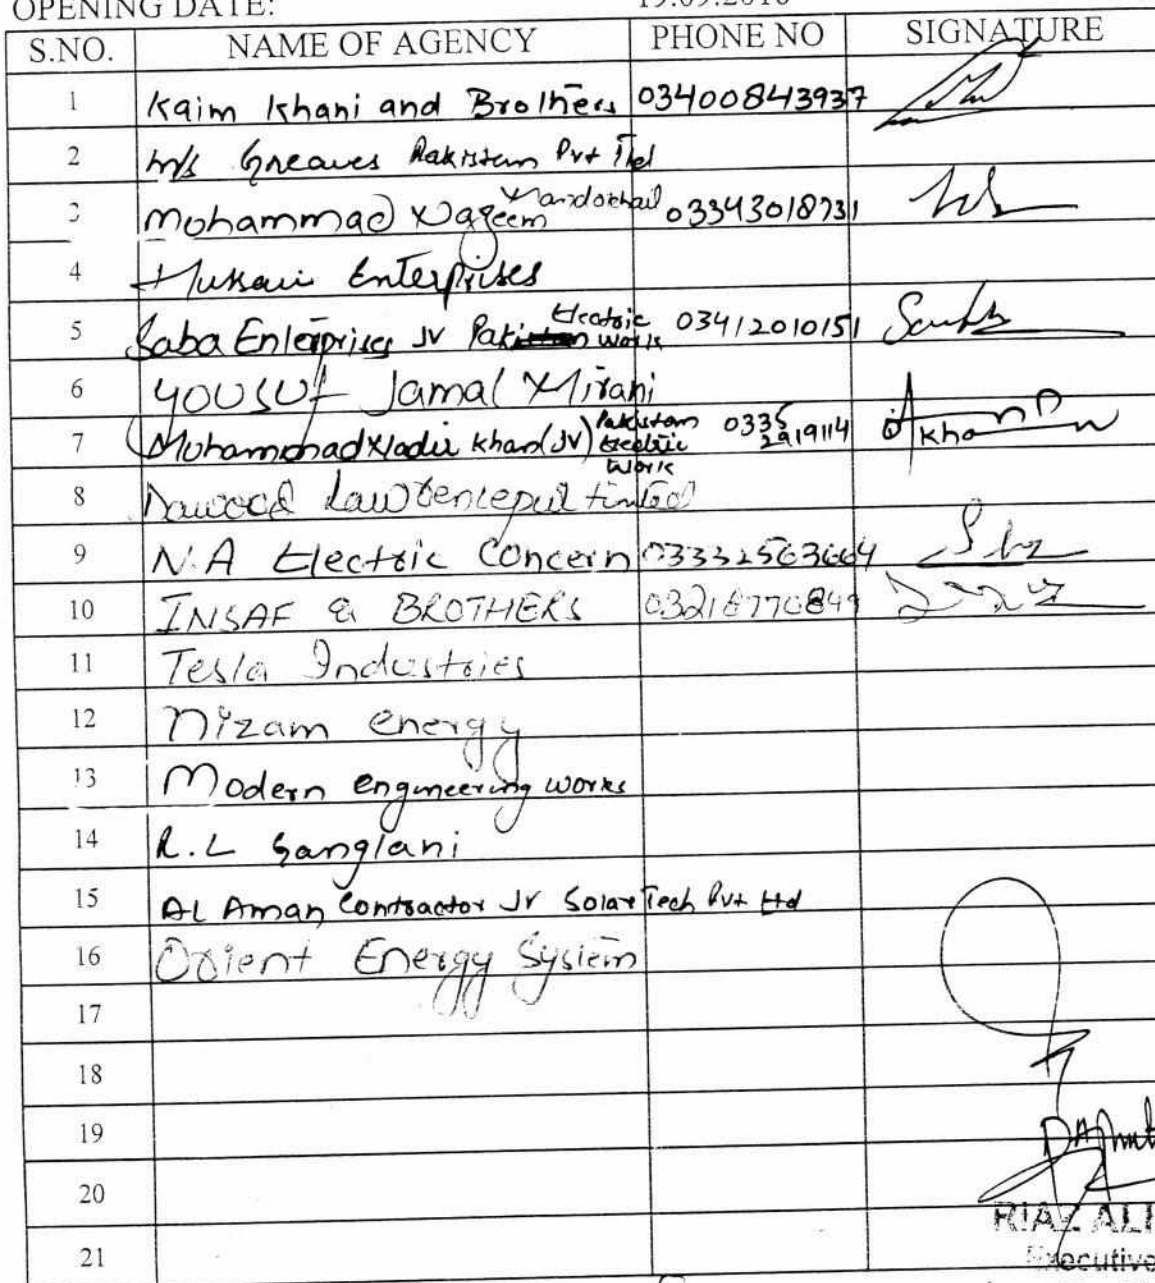 OPENING DATE: 19.09.2016
S.NO. NAME OF AGENCY PHONE NO SIGNATURE
1 Kaim Khani and Brothers 03400843937
2 M/s Greaves Pakistan Pvt Ltd
3 Mohammad Nazeem Mandokhail 03343018731
4 Hussaini Enterprises
5 Saba Enterprises JV Pakistan Electric Work 03412010151
6 YOUSUF Jamal Mirani
7 Muhammad Nadir Khan (JV) Pakistan Electric Work 0335 2919114
8 Dawood Lawrencepur Limited
9 N.A Electric Concern 03332563664
10 INSAF & BROTHERS 03218770849
11 Tesla Industries
12 Nizam energy
13 Modern engineering works
14 R.L Ganglani
15 AL Aman Contractor JV Solar Tech Pvt Ltd
16 Orient Energy System
17
18
19
20
RIAZ ALI
21 Executive